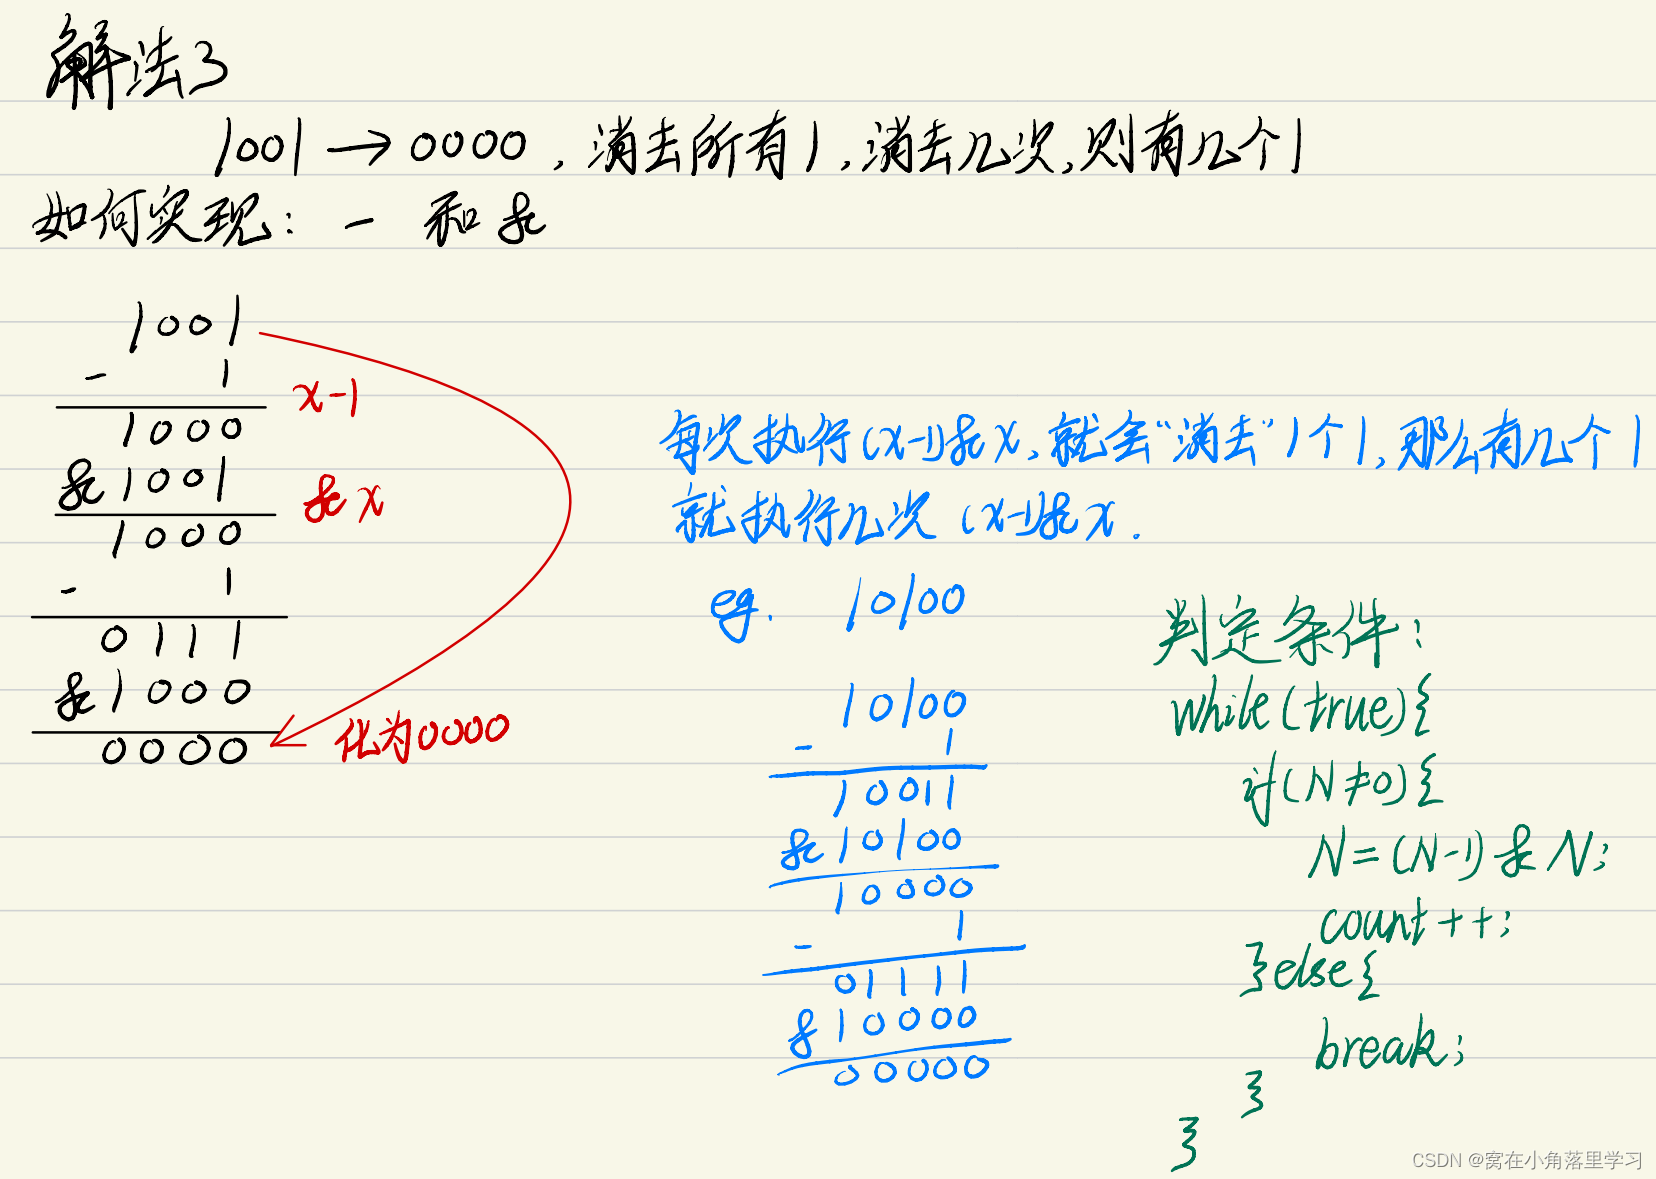 解法3
1001 → 0000，消去所有1，消去几次，则有几个1
如何实现：－ 和 &
1001
- 1
x-1
1000
&1001
&x
1000
- 1
0111
&1000
0000
化为0000
每次执行(x-1)&x，就会“消去”1个1，那么有几个1
就执行几次 (x-1)&x.
eg. 10100
10100
- 1
10011
&10100
10000
- 1
01111
&10000
00000
判定条件：
while(true){
if(N≠0){
N=(N-1)&N;
count++;
}else{
break;
}
}
CSDN @窝在小角落里学习